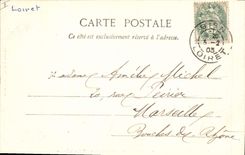 Loiret
CARTE POSTALE
Ce côté est exclusivement réservé à l'adresse.
LOIRET
Madame Amélie Michel
rue
Marseille
Bouches du Rhône